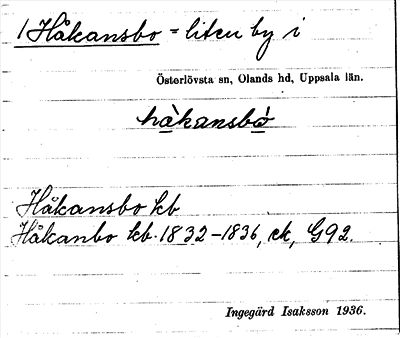 1 Håkansbo = liten by i
Österlövsta sn, Olands hd, Uppsala län.
hàkansbò
Håkansbo kb
Håkanbo kb. 1832-1836, ck, G92.
Ingegärd Isaksson 1936.